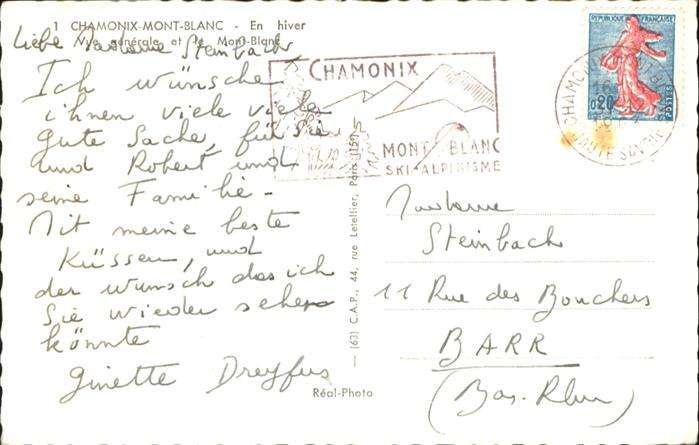 1 CHAMONIX-MONT-BLANC - En hiver
Vue générale et le Mont-Blanc
Liebe Madame Steinbach
Ich wünsche
ihnen viele viele
gute Sache, für Sie
und Robert und
seine Familie -
Mit meine beste
Küssen, und
der wunsch das ich
Sie wieder sehen
könnte
Ginette Dreyfus
CHAMONIX
MONT-BLANC
SKI-ALPINISME
REPUBLIQUE FRANÇAISE
0,20
POSTES
CHAMONIX
HAUTE SAVOIE
Madame
Steinbach
11 Rue des Bouchers
BARR
(Bas-Rhin)
— (63) C.A.P., 44, rue Letellier, Paris (15e)
Réal-Photo